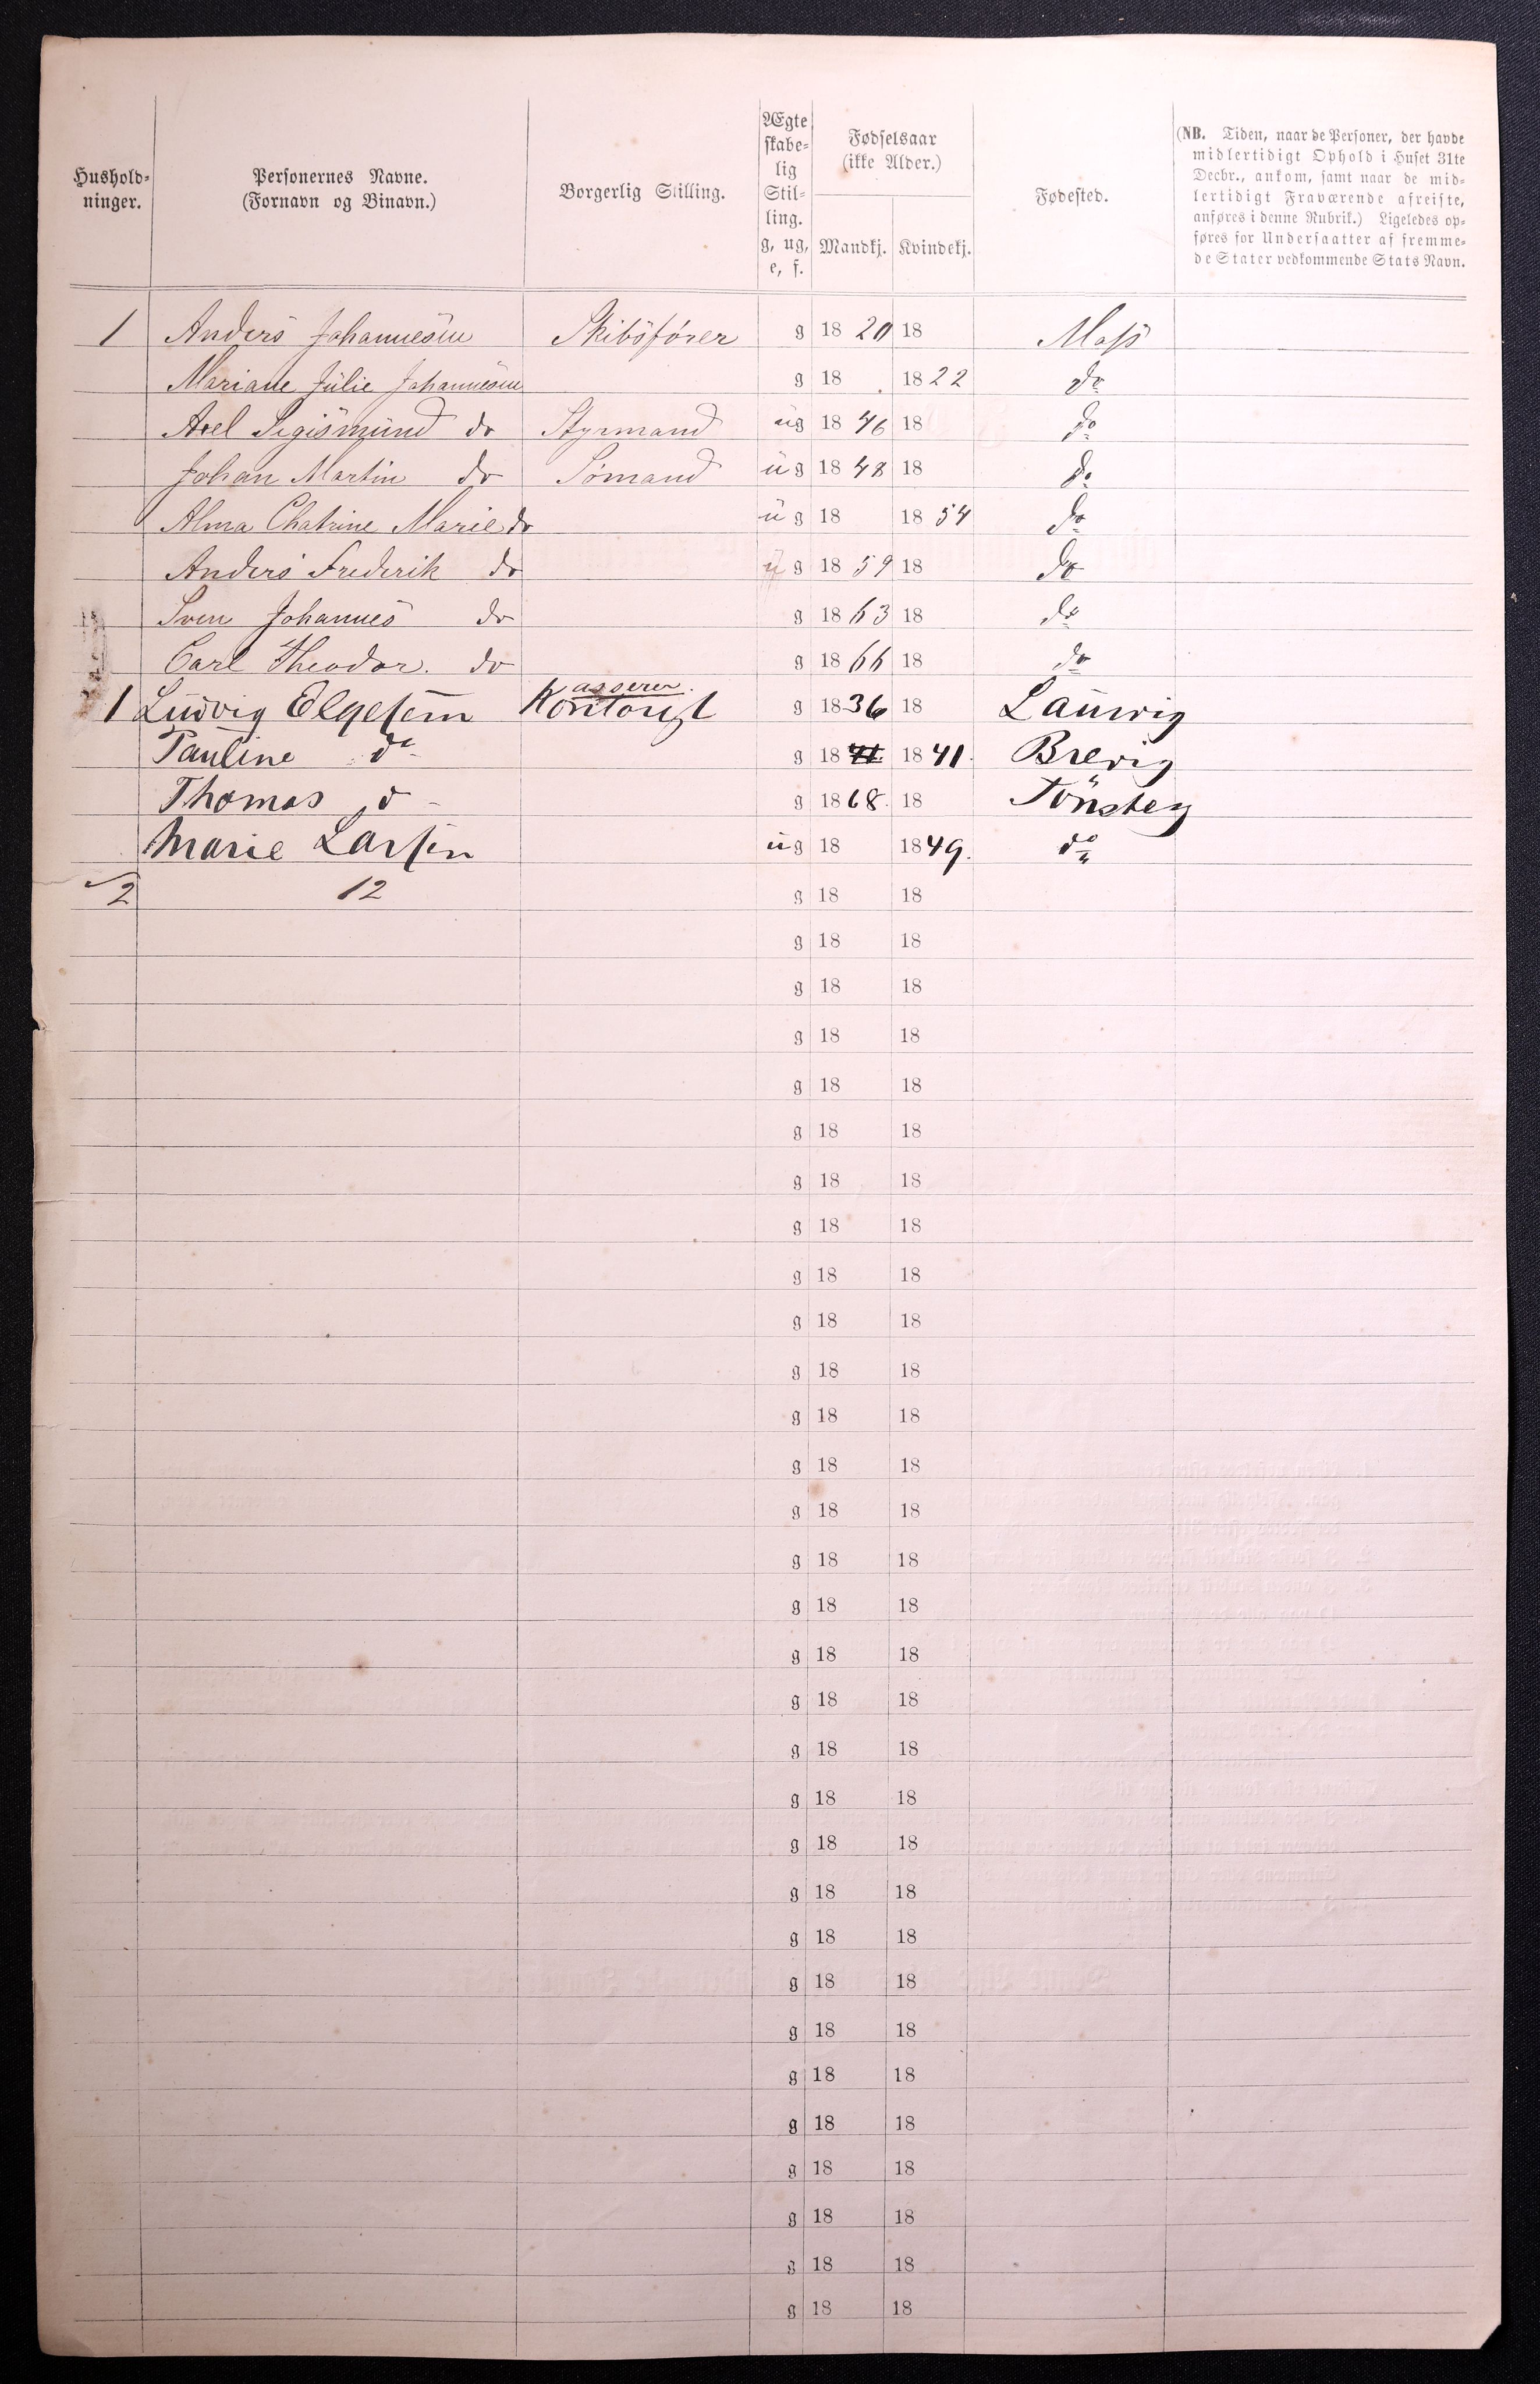 Hushold-
ninger.
Personernes Navne.
(Fornavn og Binavn.)
Borgerlig Stilling.
Ægte
skabe-
lig
Stil-
ling.
g, ug,
e, f.
Fødselsaar
(ikke Alder.)
Mandkj. Kvindekj.
Fødested.
(NB. Tiden, naar de Personer, der havde
midlertidigt Ophold i Huset 31te
Decbr., ankom, samt naar de mid-
lertidigt Fraværende afreiste,
anføres i denne Rubrik.) Ligeledes op-
føres for Undersaatter af fremme-
de Stater vedkommende Stats Navn.
1 Anders Johannesen Skibsfører g 18 20 18 Moss
Mariane Julie Johannesen g 18 18 22 do
Axel Sigismund do Styrmand ug 18 46 18 do
Johan Martin do Sömand ug 18 48 18 do
Alma Chatrine Marie do ug 18 18 54 do
Anders Frederik do ug 18 59 18 do
Sven Johannes do g 18 63 18 do
Carl Theodor. do g 18 66 18 do
asserer.
1 Ludvig Elgesem Kontorist g 18 36 18 Laurvig
Pauline do g 18 41 18 41. Brevig
Thomas d g 18 68. 18 Tönsberg
Marie Larsen ug 18 18 49. do
2 12 g 18 18
g 18 18
g 18 18
g 18 18
g 18 18
g 18 18
g 18 18
g 18 18
g 18 18
g 18 18
g 18 18
g 18 18
g 18 18
g 18 18
g 18 18
g 18 18
g 18 18
g 18 18
g 18 18
g 18 18
g 18 18
g 18 18
g 18 18
g 18 18
g 18 18
g 18 18
g 18 18
g 18 18
g 18 18
g 18 18
g 18 18